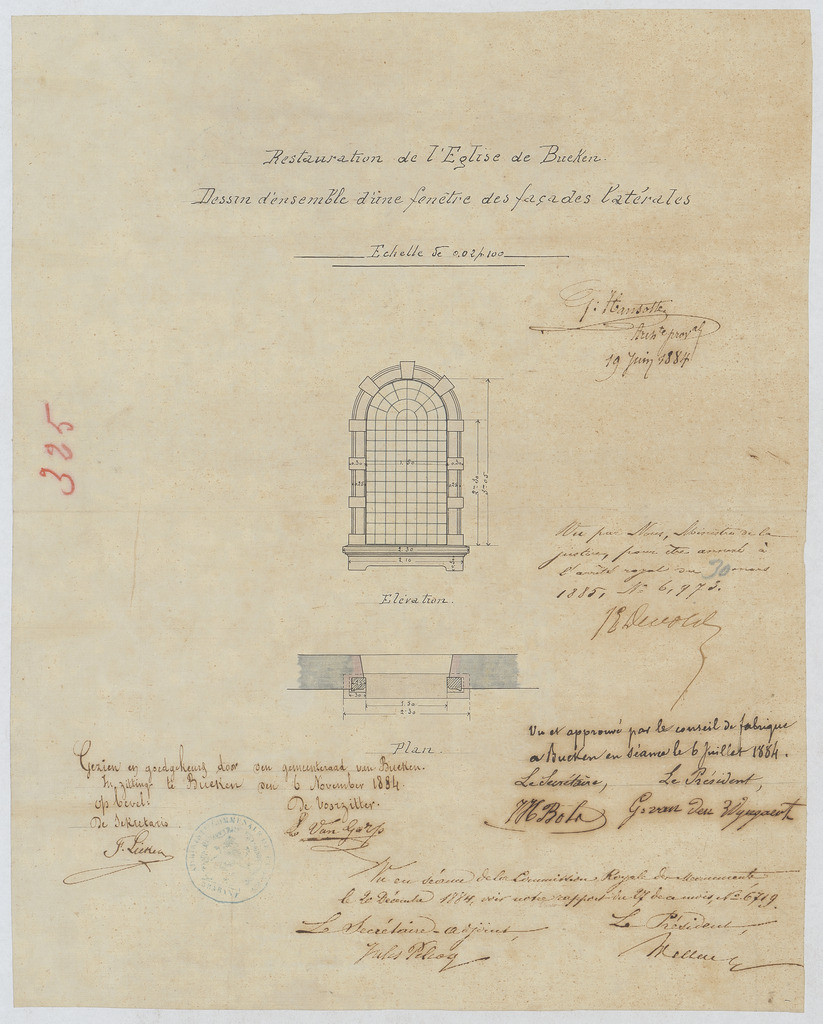 Restauration de l'Eglise de Bueken.
Dessin d'ensemble d'une fenêtre des façades latérales
Echelle de 0.02 p. 100
G. Hansotte
Archte proval
19 Juin 1884
325
1.50
0.30
0.30
2.30
2.10
2.50
5.05
Elévation.
Vu par Nous, Ministre de la
justice, pour être annexé à
l'arrêté royal du 30 mars
1885, No 6,973.
1.50
2.30
Plan.
Gezien en goedgekeurd door den gemeenteraad van Bueken.
In zitting te Bueken den 6 November 1884.
Op bevel:
De Sekretaris
De Voorzitter.
Vu et approuvé par le conseil de fabrique
a Bueken en séance le 6 Juillet 1884.
Le Secrétaire, Le Président,
G. van den Wyngaert
Vu en séance de la Commission Royale des Monuments
le 20 Décembre 1884, voir notre rapport du 27 de ce mois, No 6719.
Le Secrétaire-adjoint, Le Président,